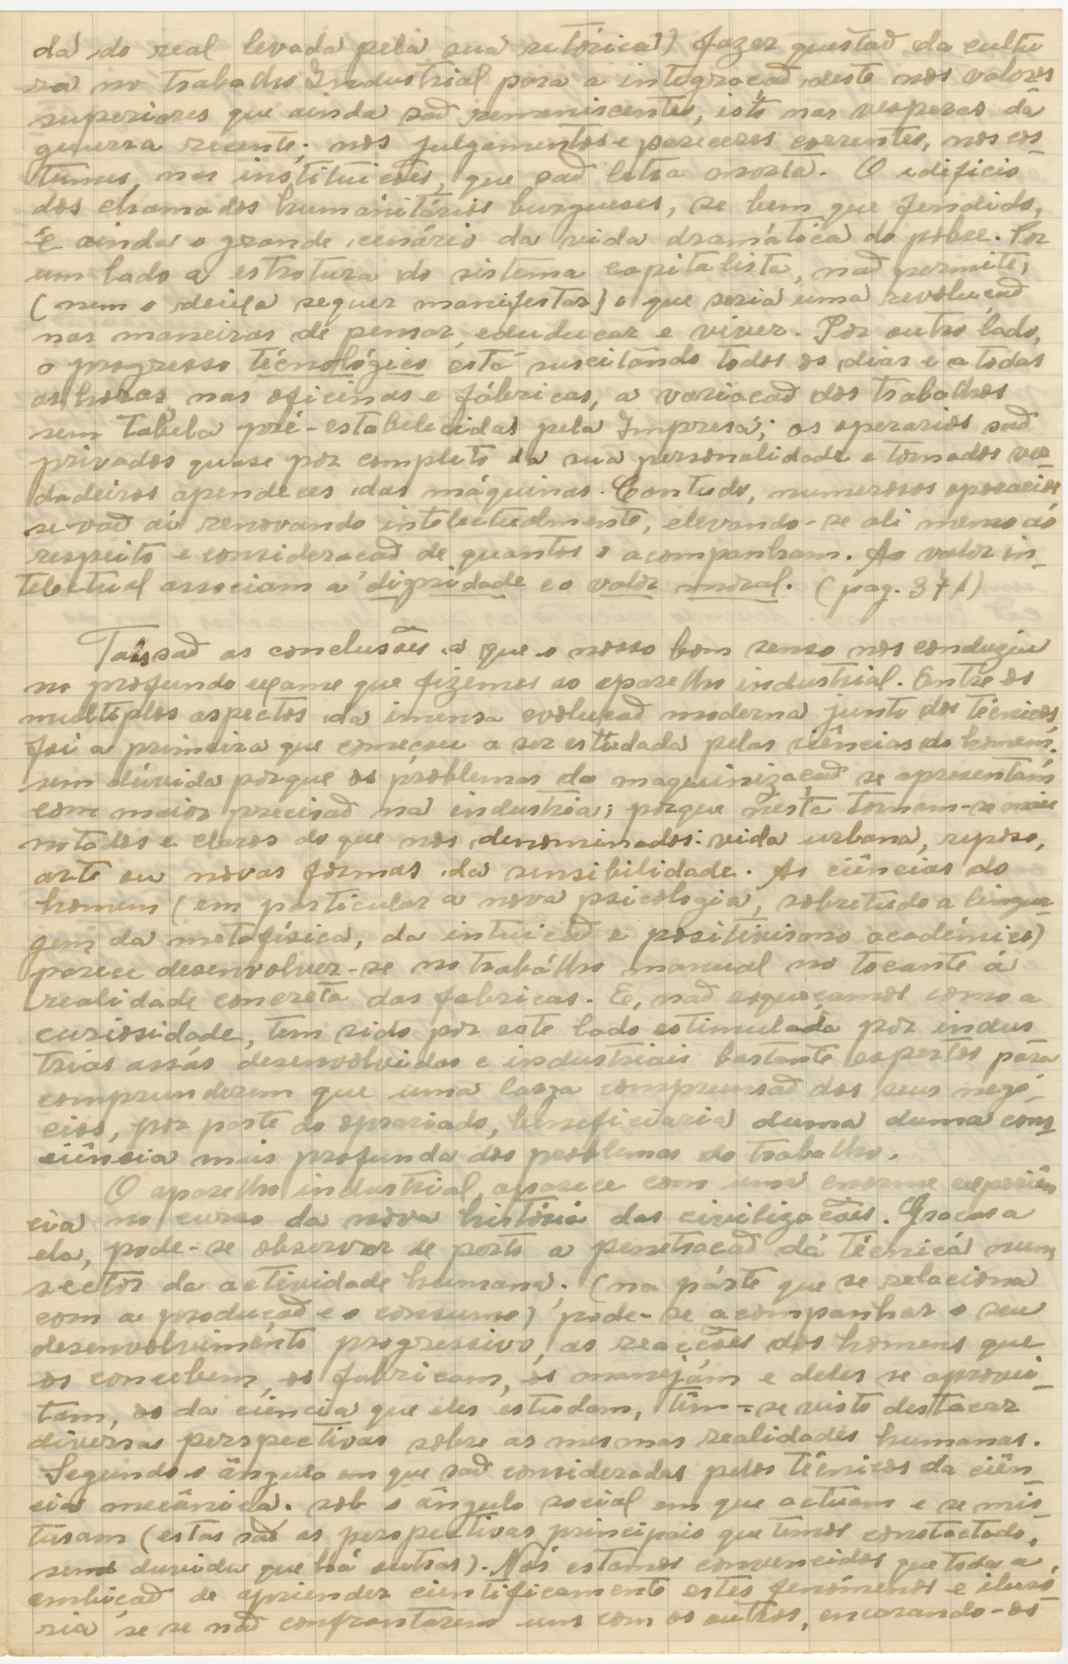 da do real levada pela sua retórica) fazer questaõ da cultu
ra no trabalho Industrial para a integraçaõ deste nos valores
superiores que ainda saõ remaniscentes, isto nas vesperas da
guerra recente; nos julgamentos e pareceres correntes, nos cos
tumes, nas instituicões, que saõ letra morta. O edificio
dos chamados humanitários burgueses, se bem que fendido,
É ainda o grande cenário da vida dramática do pobre. Por
um lado a estrutura do sistema capitalista, naõ permite,
(nem o deixa sequer manifestar) o que seria uma revoluçaõ
nas maneiras de pensar, eduducar e viver. Por outro lado,
o progresso técnológico está suscitando todos os dias e a todas
as horas, nas oficinas e fábricas, a variaçaõ dos trabalhos
sem tabela pré-estabelecidas pela Impresa; os operarios saõ
privados quase por completo da sua personalidade e tornados ver
dadeiros apendeces das máquinas. Contudo, numerosos operarios
se vaõ ai renovando intelectuelmente, elevando-se ali mesmo ao
respeito e consideracaõ de quantos o acompanham. Ao valor in_
telectual associam a dignidade e o valor moral. (pag. 371)
Tais saõ as conclusões a que o nosso bom senso nos conduziu
no profundo exame que fizemos ao aparelho industrial. Entre os
multiplos aspectos da imensa evoluçaõ moderna junto dos técnicos,
foi a primeira que começou a ser estudada pelas ciências do homem.
sem dúvida porque os problemas da maquinizaçaõ se apresentam
com maior precisaõ na industria; porque nesta tornam-se mais
notados e claros do que nos denominados: vida urbana, reposo,
arte ou novas formas da sensibilidade. As ciências do
homem (em particular a nova psicologia, sobretudo a lingua
gem da metafísica, da intuiçaõ e positivismo académico)
parece desenvolver-se no trabálho manual no tocante á
realidade concreta das fabricas. E, naõ esqueçamos como a
curiosidade, tem sido por este lado estimulada por indus
trias assás desenvolvidas e industriais bastante espertos para
comprenderem que uma larga compreensaõ dos seus negó_
cios, por parte do operariado, beneficiaria duma duma cons
ciência mais profunda dos problemas do trabalho.
O aparelho industrial, aparece com uma enorme experiên
cia no curso da nova história das civilizações. Gracas a
ela, pode-se observar de perto a penetracaõ da técnica num
sector da actividade humana. (na párte que se relaciona
com a produçaõ e o consumo) pode-se acompanhar o seu
desenvolvimento progressivo, as reacções dos homens que
os concebem, os fabricam, os manejám e deles se aprovei_
tam, os da ciência que eles estudam, têm-se visto destacar
diversas perspectivas sobre as mesmas realidades humanas.
Segundo o ângulo em que saõ consideradas pelos técnicos da ciên
cia mecânica. sob o ângulo social em que actuam e se mis
turam (estas saõ as perspectivas principais que temos constactado,
sem duvida que há outras). Nós estamos convencidos que toda a
embiçaõ de aprender cientificamente estes fenómenos é ilusó
ria se se naõ confrontarem uns com os outros, encarando-os